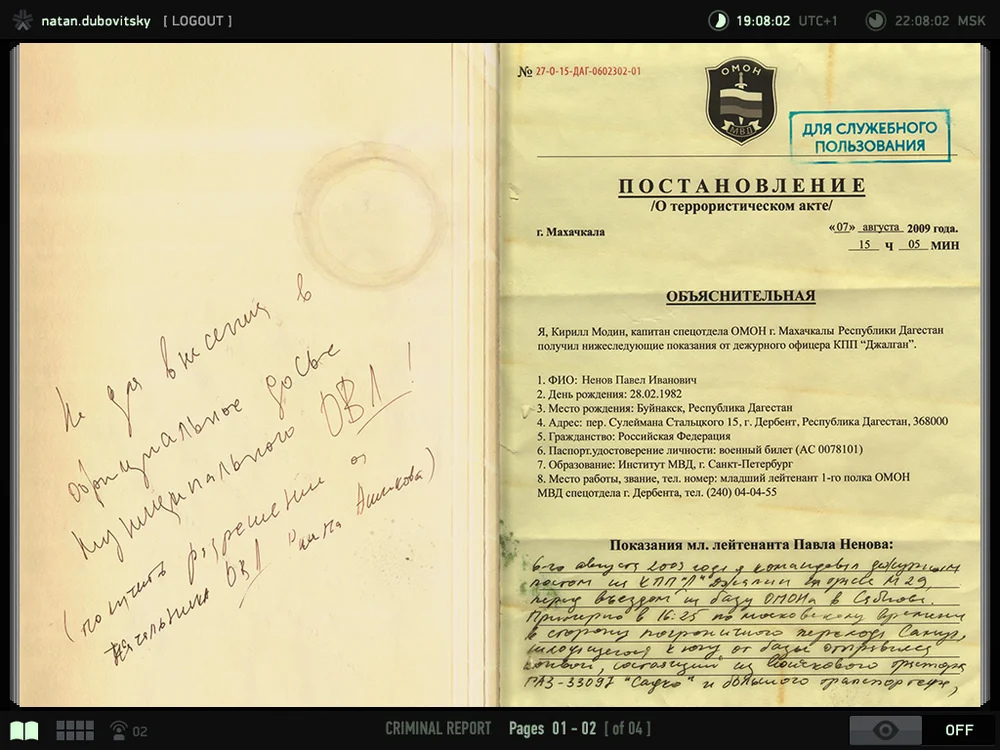 natan.dubovitsky [ LOGOUT ]
19:08:02 UTC+1 22:08:02 MSK
Не для внесения в
официальное досье
муниципального ОВД!
(получить разрешение от
начальника ОВД
№ 27-О-15-ДАГ-0602302-01
ОМОН
МВД
ДЛЯ СЛУЖЕБНОГО
ПОЛЬЗОВАНИЯ
ПОСТАНОВЛЕНИЕ
/О террористическом акте/
г. Махачкала
«07» августа 2009 года.
15 Ч 05 МИН
ОБЪЯСНИТЕЛЬНАЯ
Я, Кирилл Модин, капитан спецотдела ОМОН г. Махачкалы Республики Дагестан
получил нижеследующие показания от дежурного офицера КПП “Джалган”.
1. ФИО: Ненов Павел Иванович
2. День рождения: 28.02.1982
3. Место рождения: Буйнакск, Республика Дагестан
4. Адрес: пер. Сулеймана Стальцкого 15, г. Дербент, Республика Дагестан, 368000
5. Гражданство: Российская Федерация
6. Паспорт.удостоверение личности: военный билет (АС 0078101)
7. Образование: Институт МВД, г. Санкт-Петербург
8. Место работы, звание, тел. номер: младший лейтенант 1-го полка ОМОН
МВД спецотдела г. Дербента, тел. (240) 04-04-55
Показания мл. лейтенанта Павла Ненова:
6-го августа 2009 года я командовал дежурным
постом на КПП "Джалган" трассе М29
перед въездом на базу ОМОНа в Сабнове.
Примерно в 16:25 по московскому времени
в сторону пограничного перехода Самур,
находящегося к югу от базы отправился
конвой, состоящий из войскового трактора
ГАЗ-33097 "Садко" и большого транспортера,
02
CRIMINAL REPORT Pages 01 - 02 [ of 04 ]
OFF